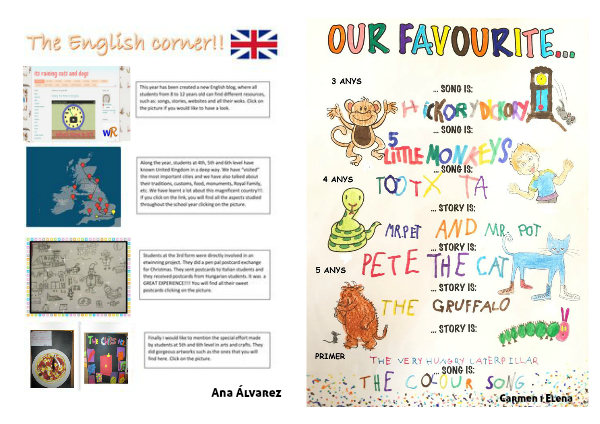 The English corner!!
its raining cats and dogs
WR
This year has been created a new English blog, where all
students from 8 to 12 years old can find different resources,
such as: songs, stories, websites and all their woks. Click on
the picture if you would like to have a look.
Along the year, students at 4th, 5th and 6th level have
known United Kingdom in a deep way. We have "visited"
the most important cities and we have also talked about
their traditions, customs, food, monuments, Royal Family,
etc. We have learnt a lot about this magnificent country!!!.
If you click on the link, you will find all the aspects studied
throughout the school year clicking on the picture.
Students at the 3rd form were directly involved in an
etwinning project. They did a pen pal postcard exchange
for Christmas. They sent postcards to Italian students and
they received postcards from Hungarian students. It was a
GREAT EXPERIENCE!!!! You will find all their sweet
postcards clicking on the picture.
Finally I would like to mention the special effort made
by students at 5th and 6th level in arts and crafts. They
did gorgeous artworks such as the ones that you will
find here. Click on the picture.
Ana Álvarez
OUR FAVOURITE...
3 ANYS
... SONG IS:
HICKORY DICKORY
... SONG IS:
5
LITTLE MONKEYS
... SONG IS:
4 ANYS
TOOTX TA
... STORY IS:
MR.PET AND MR. POT
... STORY IS:
PETE THE CAT
5 ANYS
... STORY IS:
THE GRUFFALO
... STORY IS:
PRIMER
THE VERY HUNGRY CATERPILLAR
... SONG IS:
THE COLOUR SONG
Carmen i Elena